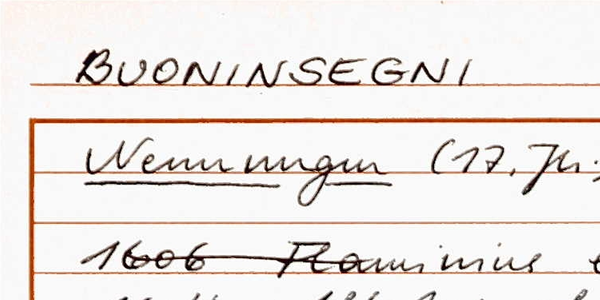 BUONINSEGNI
Nennungen (17. Jh.
1606 Flaminius